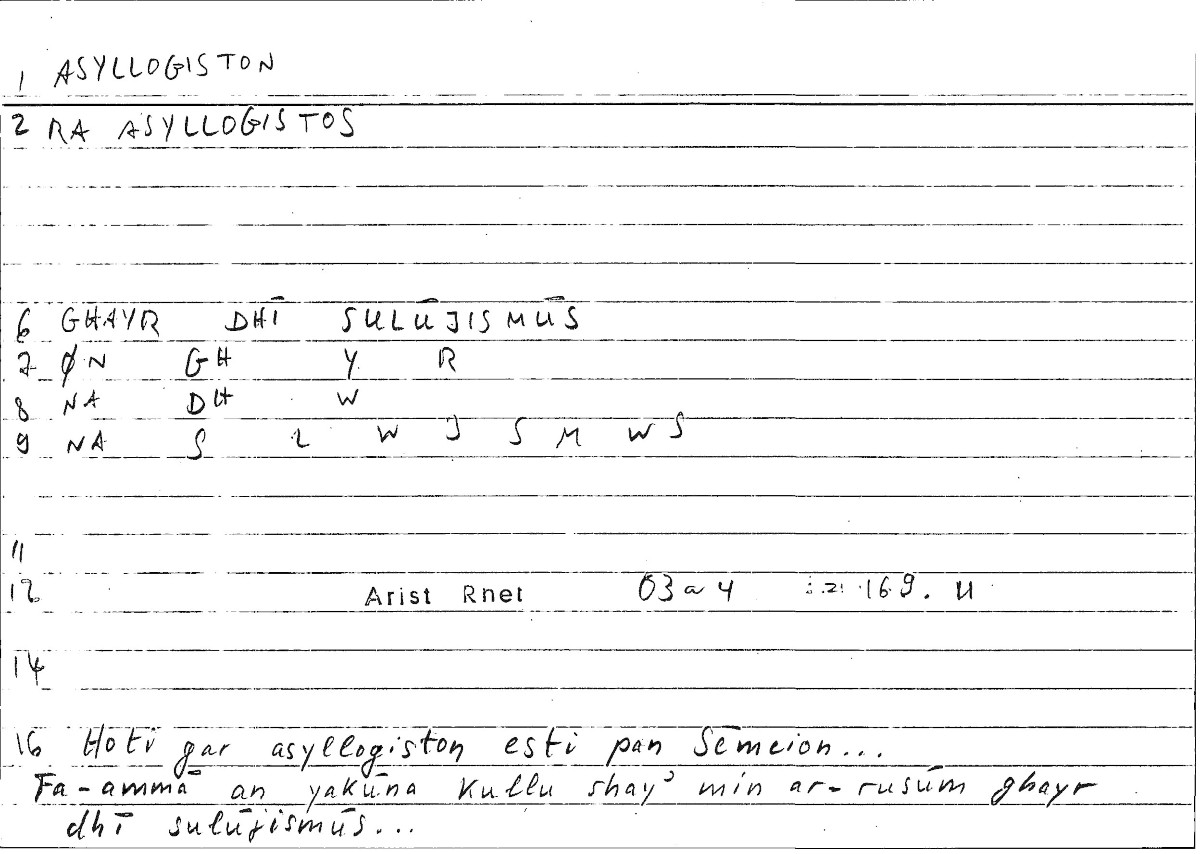 1 ASYLLOGISTON
2 RA ASYLLOGISTOS
6 GHAYR DHĪ SULŪJISMŪS
7 ØN GH Y R
8 NA DH W
9 NA S L W J S M W S
11
12 Arist Rnet 03a4 169.11
14
16 Hoti gar asyllogiston esti pan Sēmeion...
Fa-ammā an yakūna kullu shay' min ar-rusūm ghayr
dhī sulūjismūs...